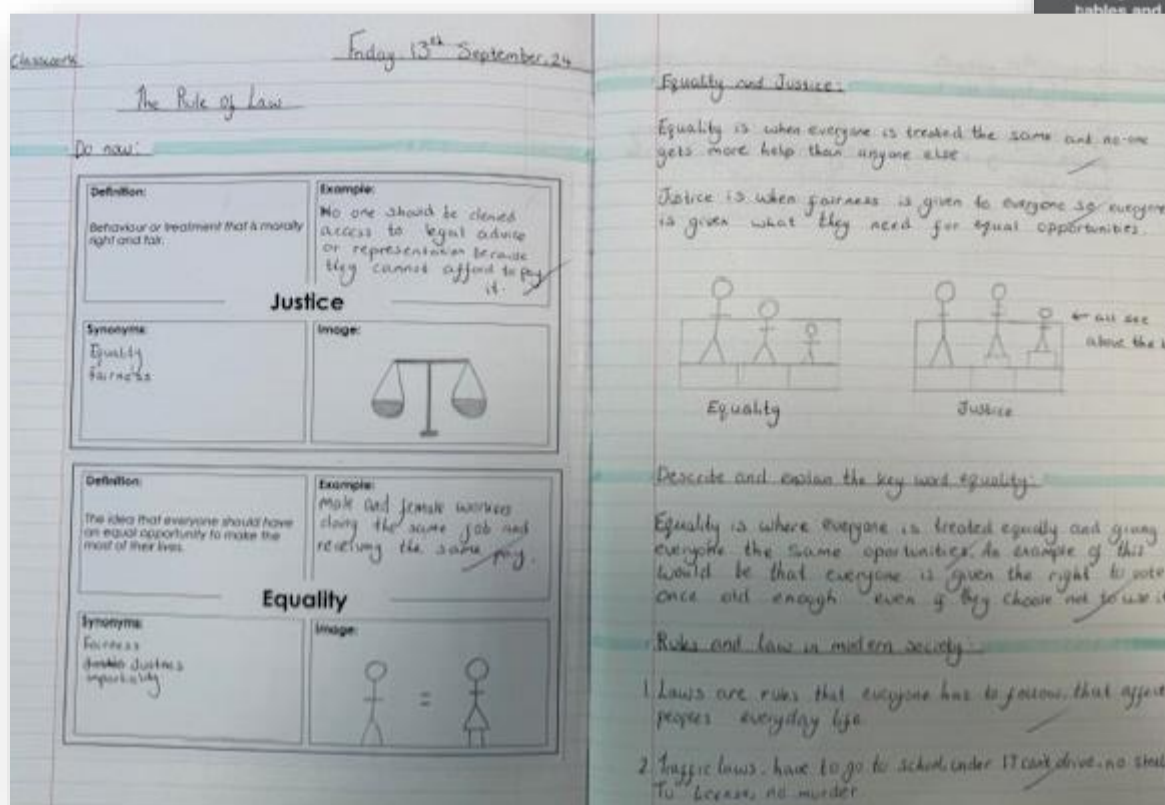 tables and
Classwork
Friday 13th September, 24
The Rule of Law
Do now:
Definition:
Behaviour or treatment that is morally
right and fair.
Example:
No one should be denied
access to legal advice
or representation because
they cannot afford to pay
it.
Justice
Synonyms:
Equality
Fairness
Image:
Definition:
The idea that everyone should have
an equal opportunity to make the
most of their lives.
Example:
male and female workers
doing the same job and
receiving the same pay.
Equality
Synonyms:
Fairness
Justnes
impartiality
Image:
=
Equality and Justice:
Equality is when everyone is treated the same and no-one
gets more help than anyone else
Justice is when fairness is given to everyone so everyone
is given what they need for equal opportunities.
← all see
above the
Equality
Justice
Describe and explain the key word equality:
Equality is where everyone is treated equally and giving
everyone the same oportunities. An example of this
would be that everyone is given the right to vote
once old enough even if they choose not to use it
Rules and law in modern society:
1. Laws are rules that everyone has to follow, that affect
peoples everyday life
2. Traffic laws, have to go to school, under 17 can't drive, no
TV license, no murder